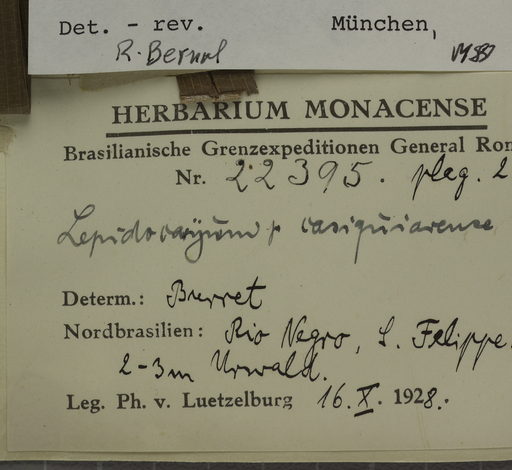 Det. - rev. München,
R. Bernal
HERBARIUM MONACENSE
Brasilianische Grenzexpeditionen General Ron
Nr. 22395. pleg. 2
Lepidocaryum casiquiarense
Determ.: Burret
Nordbrasilien: Rio Negro, S. Felippe.
2-3m Urwald.
Leg. Ph. v. Luetzelburg 16. X. 1928.